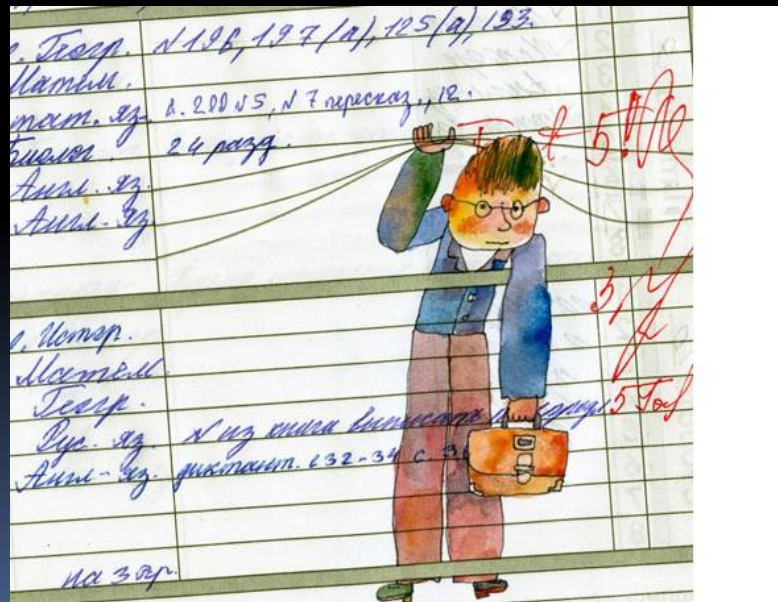 Геогр. N 196, 197 (а), 125 (а), 193.
Матем.
тат. яз. с. 200 N5, N 7 пересказ., 12.
Биолог. 24 разд.
Англ. яз.
Англ. яз
5
3/
Истор.
Матем
Геогр. 5
Рус. яз. N из книги выписать
Англ-яз. диктант. с 32-34 с. 3
на 3 стр.